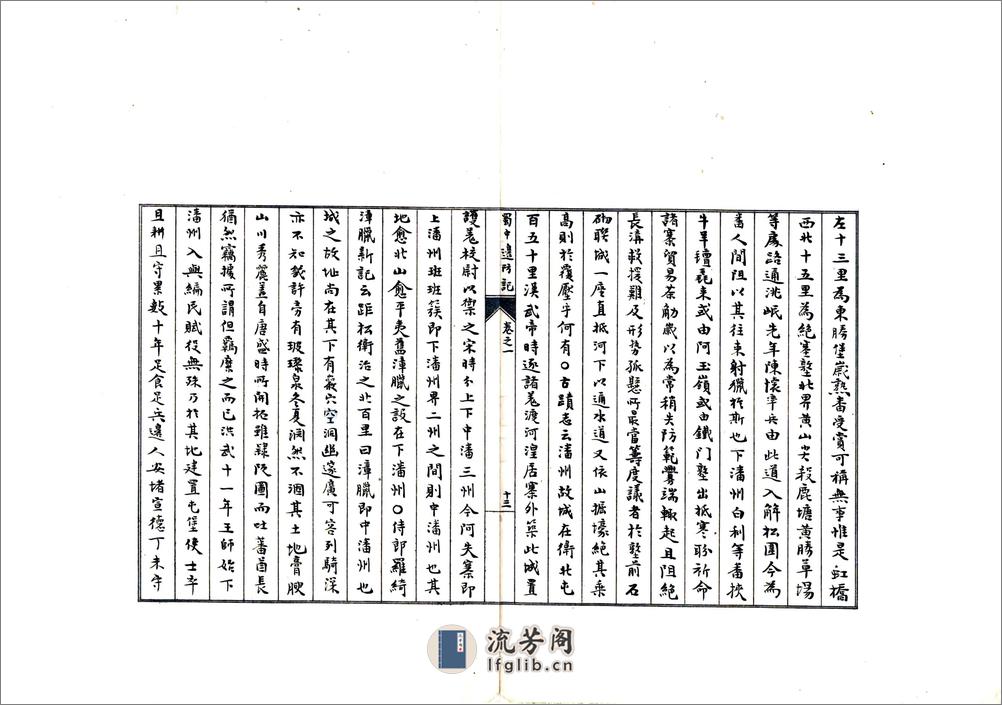 左十三里為東勝堡嵗熟番受賞可稱無事惟是虹橋
西北十五里為絶塞墪北界黄山尖殺鹿塘黄勝草場
等處路通洮岷先年陳懐率兵由此道入解松圍今為
番人間阻以其徃來射獵於斯也下潘州白利等番挾
牛羊氊毳来或由阿玉嶺或由鐵門墪出抵寒盼祈命
諸寨貿易茶觔嵗以為常稍失防範釁端輙起且阻絶
長溝救援難及形勢孤懸所最當籌度議者於墪前石
砌聯城一座直抵河下以通水道又依山掘壕絶其乘
高則於覆壓乎何有〇古蹟志云潘州故城在衛北屯
百五十里漢武帝時逐諸羌渡河湟居寨外築此城置
蜀中邊防記
卷之一
十三
護羌校尉以禦之宋時分上下中潘三州今阿失寨即
上潘州班班簇即下潘州界二州之間則中潘州也其
地愈北山愈平夷舊漳臘之設在下潘州〇侍郎羅綺
漳臘新記云距松衛治之北百里曰漳臘即中潘州也
城之故址尚在其下有巌穴空洞幽邃廣可容列騎深
亦不知幾許旁有玻璨泉冬夏洞然不涸其土地膏腴
山川秀麗盖自唐盛時所開拓雖録版圖而吐蕃酋長
猶然竊據所謂但羈縻之而已洪武十一年王師始下
潘州入與編民賦役無殊乃於其地建置屯堡使士卒
且耕且守累數十年足食足兵邊人安堵宣德丁未守
流芳阁
lfglib.cn